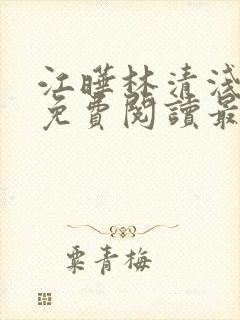 江曄林清淺
免費閱讀最
粟青梅